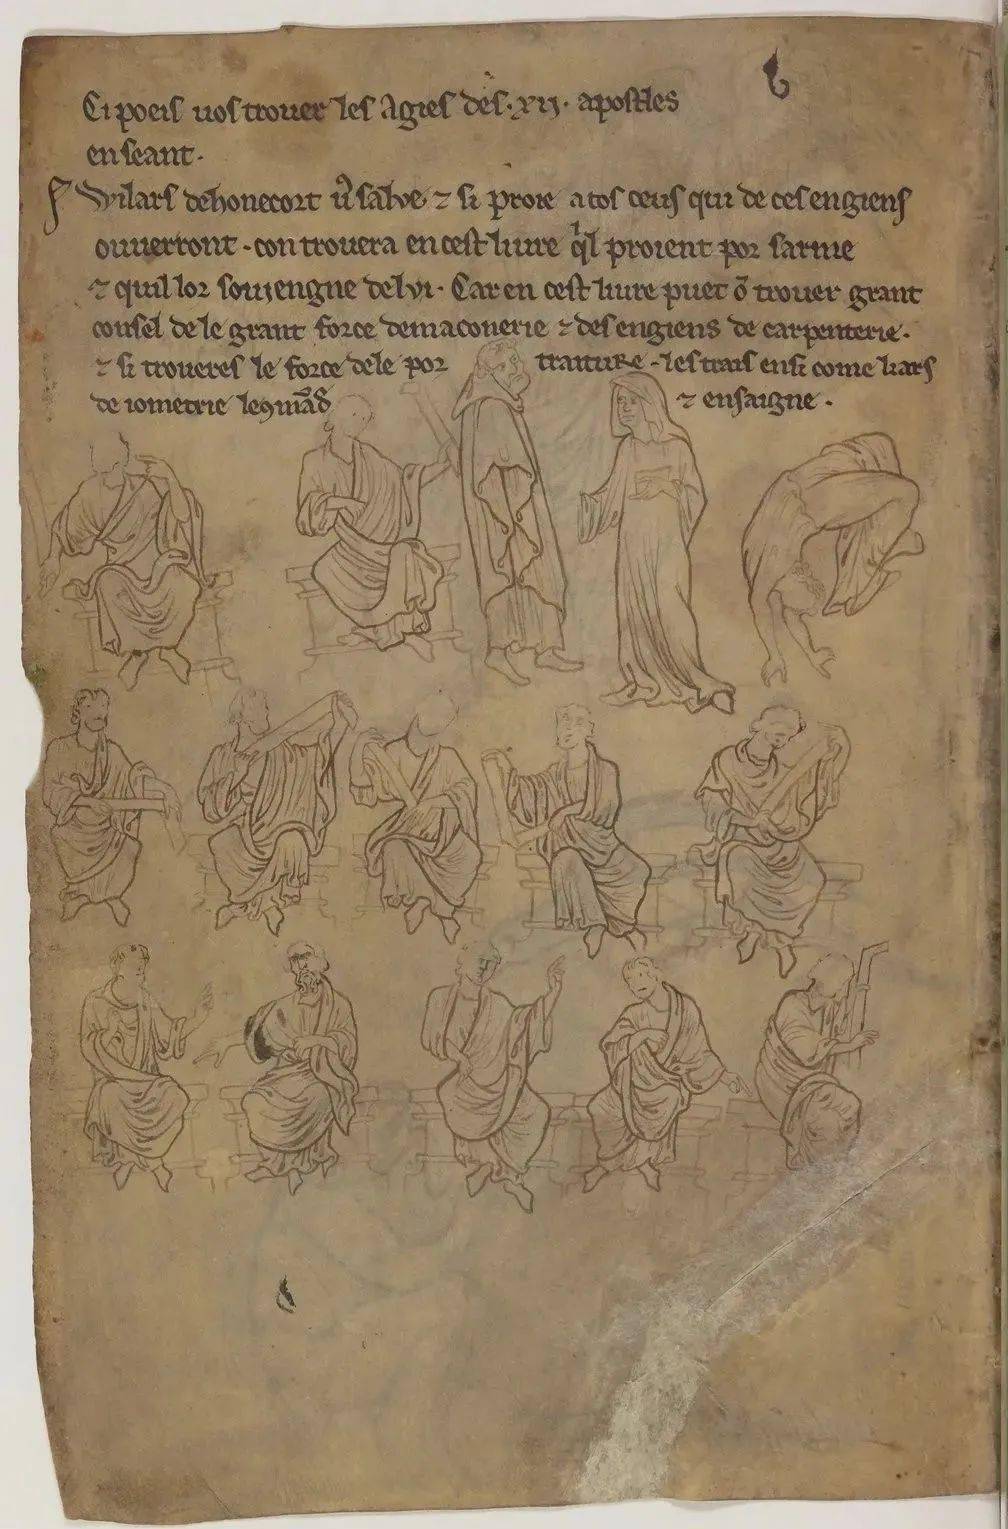 Ci poeis vos trover les agies des .xii. apostles
en seant.
Wilars dehonecort v̄ salve ⁊ si proie a tos ceus qui de ces engiens
ouverront . con trovera en cest livre q̄l proient por sarme
⁊ quil lor soviengne de lvi . Car en cest livre puet ō trover grant
consel de le grant force de maconerie ⁊ des engiens de carpenterie .
⁊ si troveres le force de le por traiture . les trais ensi come li ars
de iometrie le 9māđ ⁊ ensaigne .